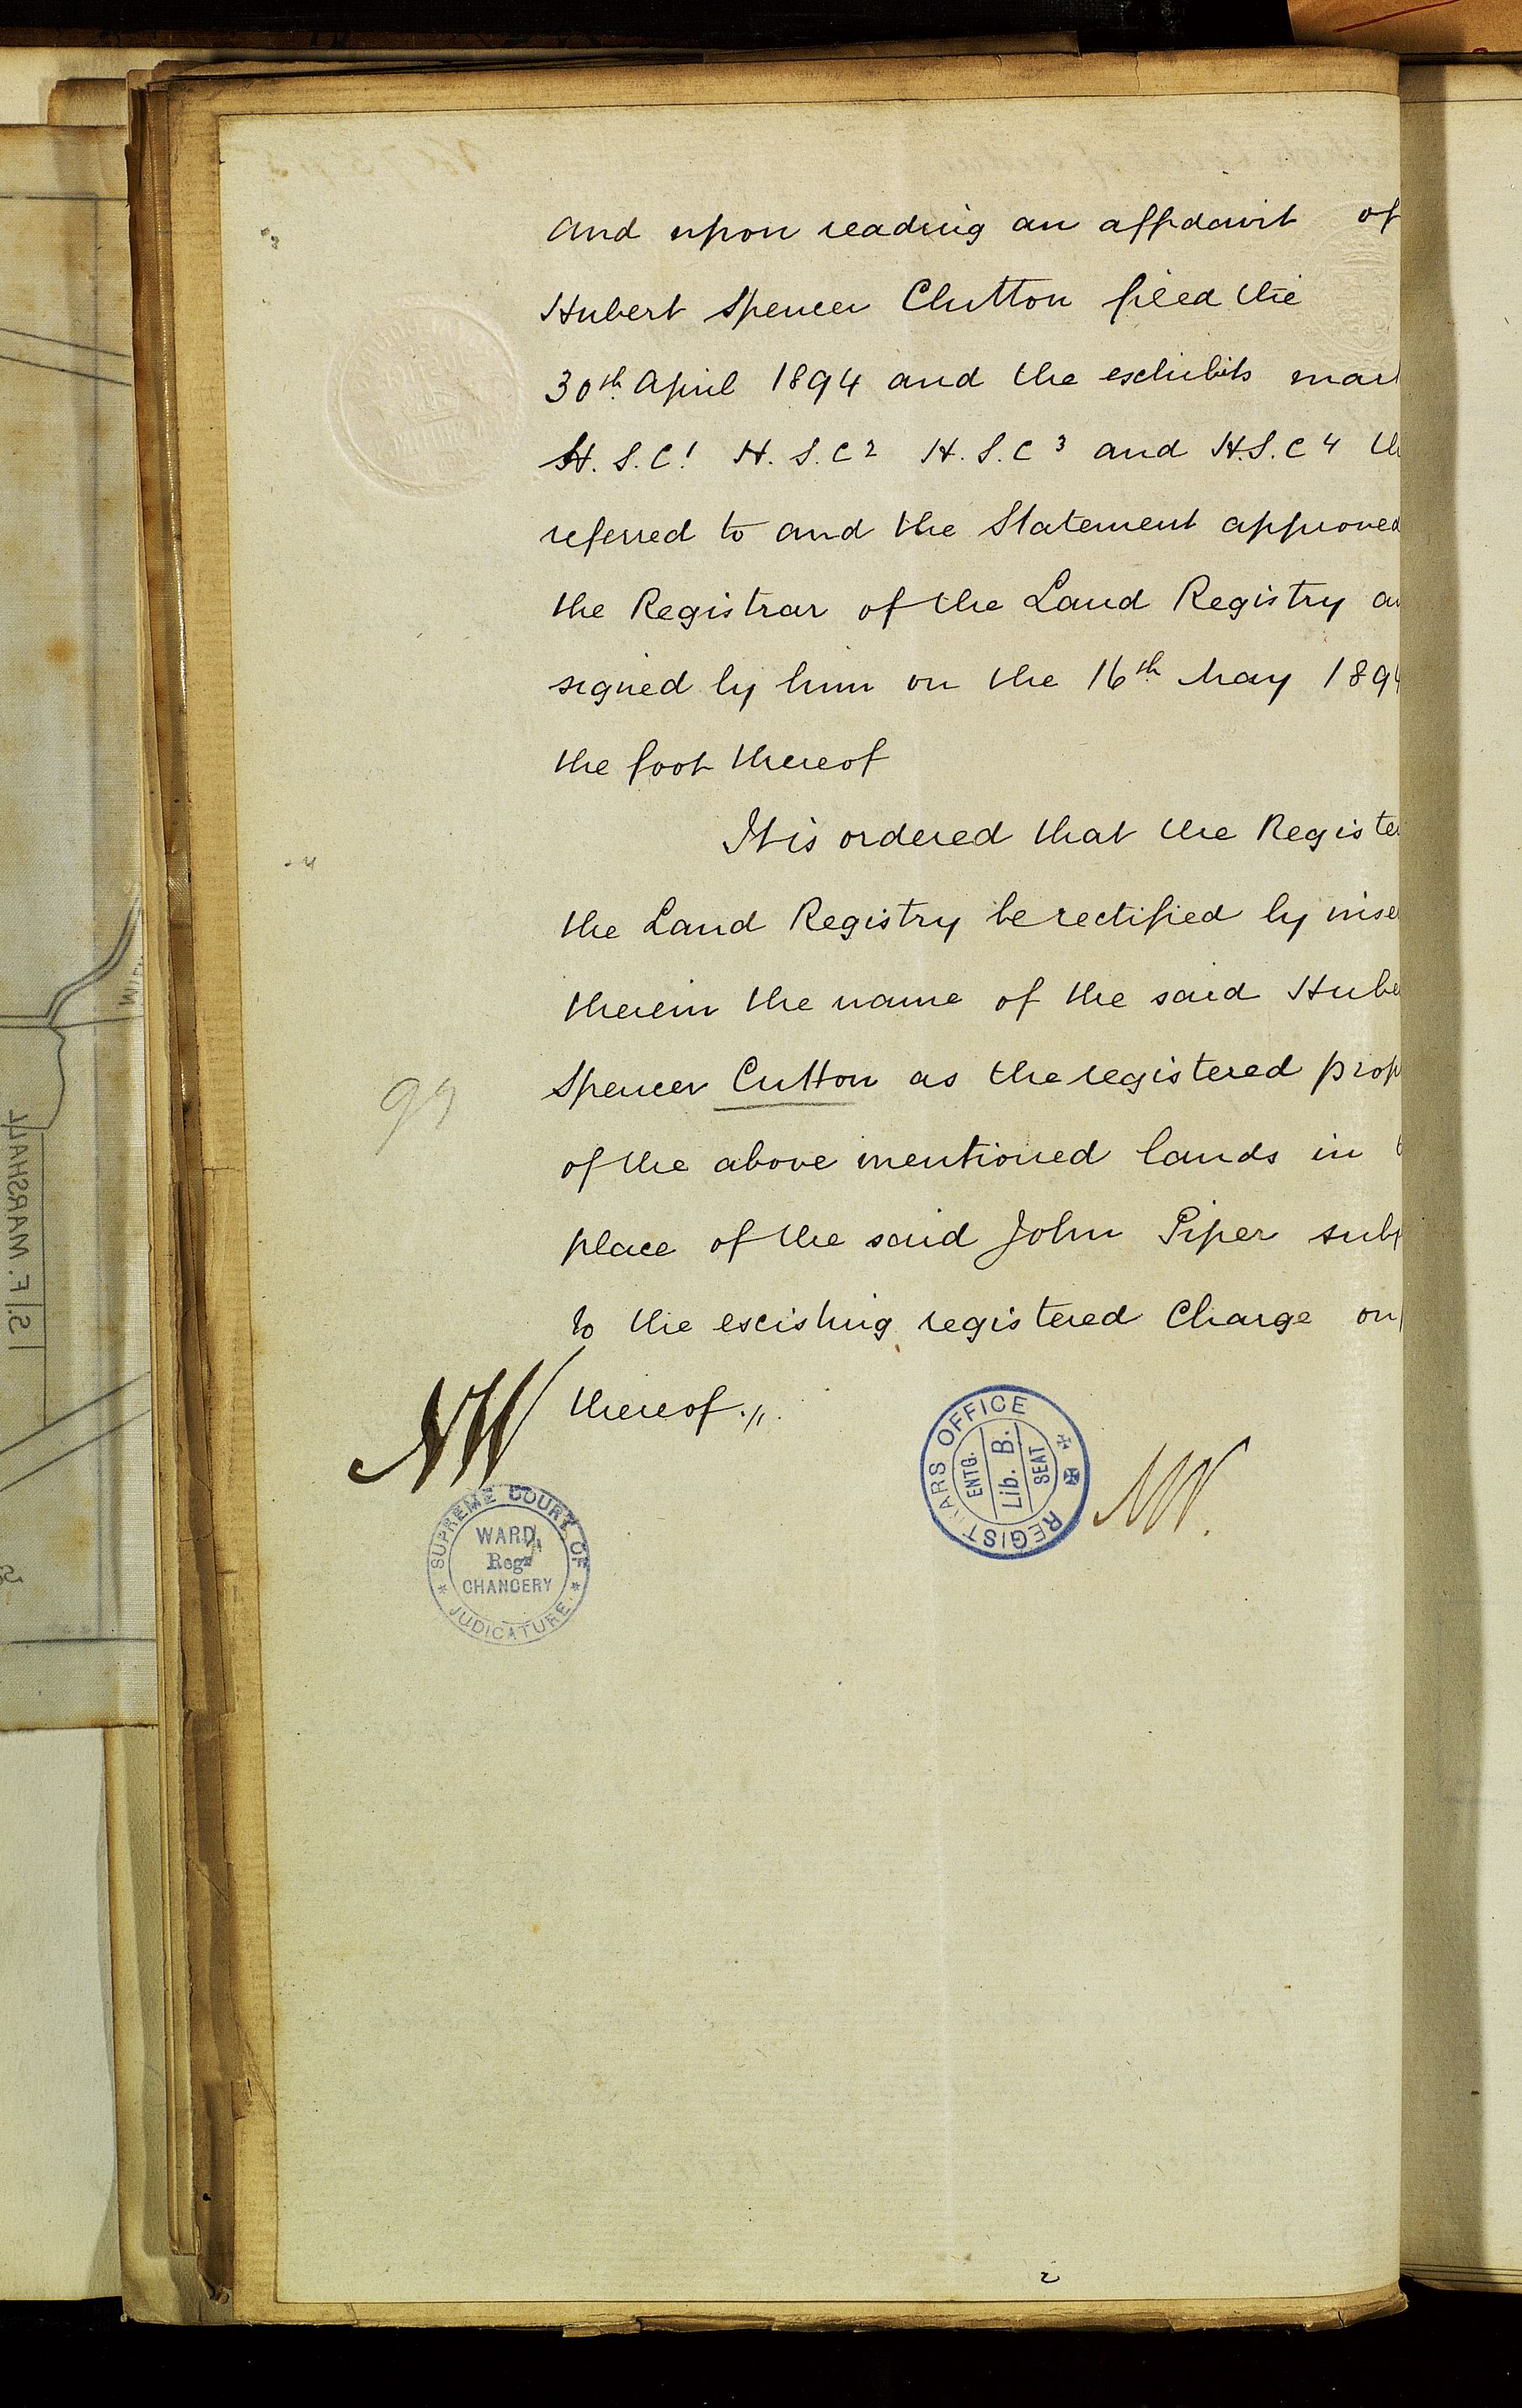 and upon reading an affidavit of
Hubert Spencer Clutton filed the
30th April 1894 and the exhibits mar
H.S.C1 H.S.C2 H.S.C3 and H.S.C4 th
referred to and the Statement approved
the Registrar of the Land Registry a
signed by him on the 16th May 1894
the foot thereof
It is ordered that the Register
the Land Registry be rectified by inse
therein the name of the said Hube
Spencer Cutton as the registered prop
99
of the above mentioned lands in t
place of the said John Piper subj
to the existing registered Charge on
thereof.
NW
REGISTRARS OFFICE
ENTG.
Lib. B.
SEAT
NW.
SUPREME COURT OF
JUDICATURE
WARD,
Regr
CHANCERY
2
S. F. MARSHALL